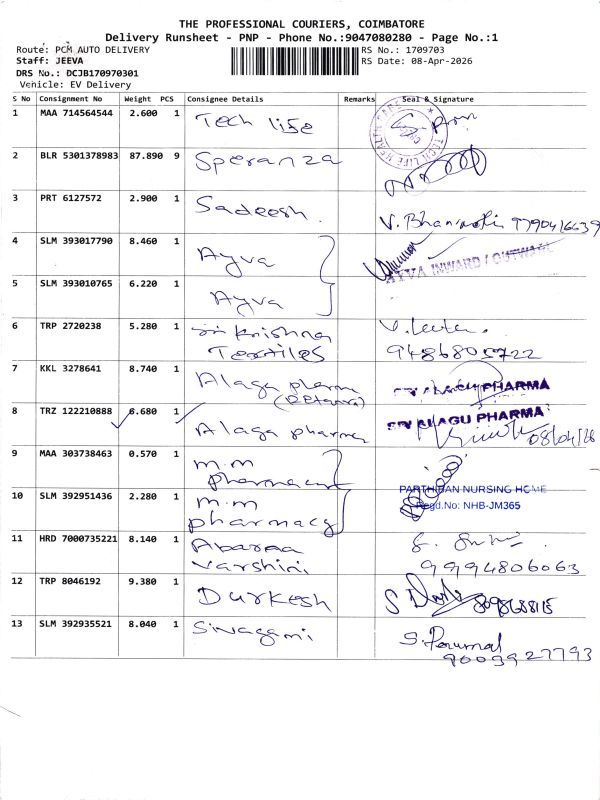 THE PROFESSIONAL COURIERS, COIMBATORE
Delivery Runsheet - PNP - Phone No.:9047080280 - Page No.:1
Route: PCM AUTO DELIVERY
RS No.: 1709703
Staff: JEEVA
RS Date: 08-Apr-2026
DRS No.: DCJB170970301
Vehicle: EV Delivery
S No Consignment No Weight PCS Consignee Details Remarks Seal & Signature
1 MAA 714564544 2.600 1 Tech life
TECH LIFE HEALTH CARE
2 BLR 5301378983 87.890 9 Speranza
3 PRT 6127572 2.900 1 Sadeesh.
V. 9790416639
4 SLM 393017790 8.460 1 Ayva
AYVA INWARD / OUTWARD
5 SLM 393010765 6.220 1 Ayva
6 TRP 2720238 5.280 1 Sri Krishna
Textiles
9486805722
7 KKL 3278641 8.740 1 Alaga pharma
SRI ALAGU PHARMA
8 TRZ 122210888 6.680 1 Alaga pharma
SRI ALAGU PHARMA
08/04/26
9 MAA 303738463 0.570 1 m.m
pharmacy
PARTHIBAN NURSING HOME
Regd.No: NHB-JM365
10 SLM 392951436 2.280 1 m.m
pharmacy
11 HRD 7000735221 8.140 1 Abaraa
Varshini
9994806063
12 TRP 8046192 9.380 1 Durkesh
13 SLM 392935521 8.040 1 Sivagami
S. Perumal
9009927793